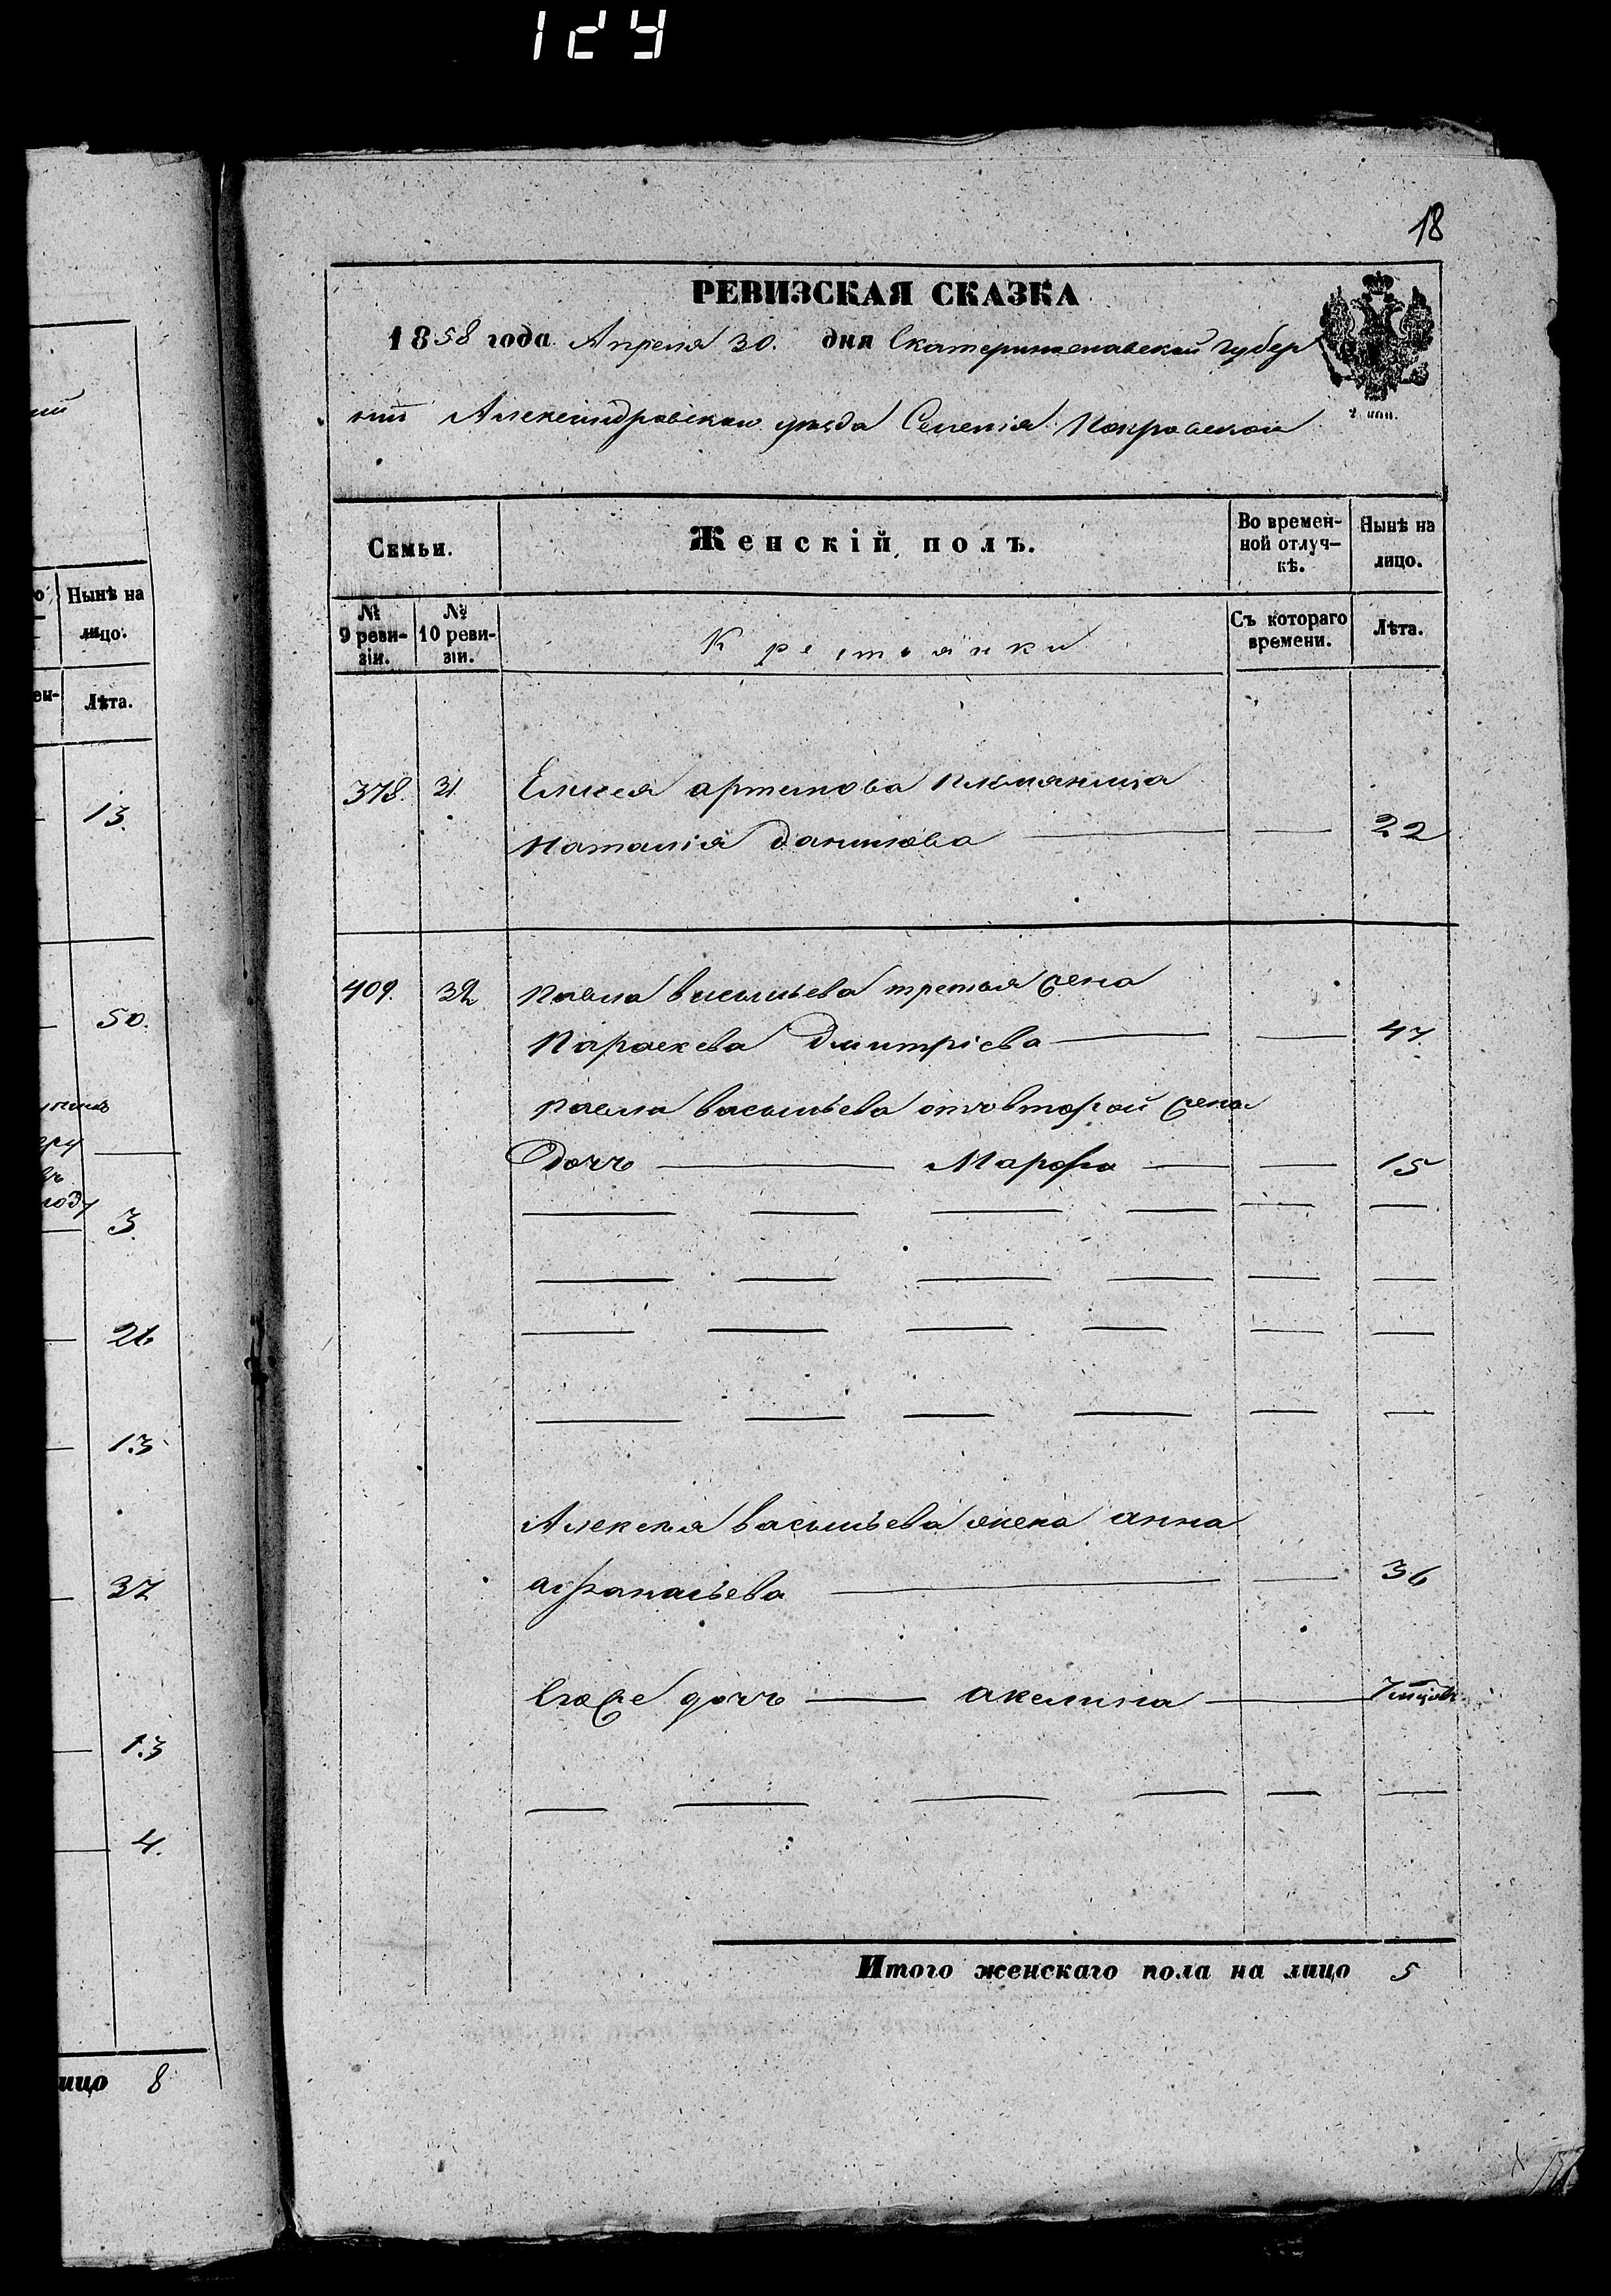 124
18
РЕВИЗСКАЯ СКАЗКА
1858 года Апреля 30. дня Екатеринославской Губер
нiи Александровскаго уезда Селенiя Покровской
2 коп.
Семьи.
Женскій полъ.
Во времен-
ной отлуч-
кѣ.
Нынѣ на
лицо.
№
9 реви-
зіи.
№
10 реви-
зіи.
Крестьянки
Съ котораго
времени.
Лѣта.
378. 31. Елисея артемова племяница
Наталiя данилова 22
409. 32 Павла васильева третья жена
Параскева Дмитрiева 47.
Павла васильева отъ второй жены
Дочь Марфа 15
Алексея васильева жена анна
афанасьева 36
Егоже дочь акелина 7 мцовъ
Итого женскаго пола на лицо 5
о Нынѣ на
лицо.
ен- Лѣта.
13.
50.
3.
26
13
37
13
4.
лицо 8